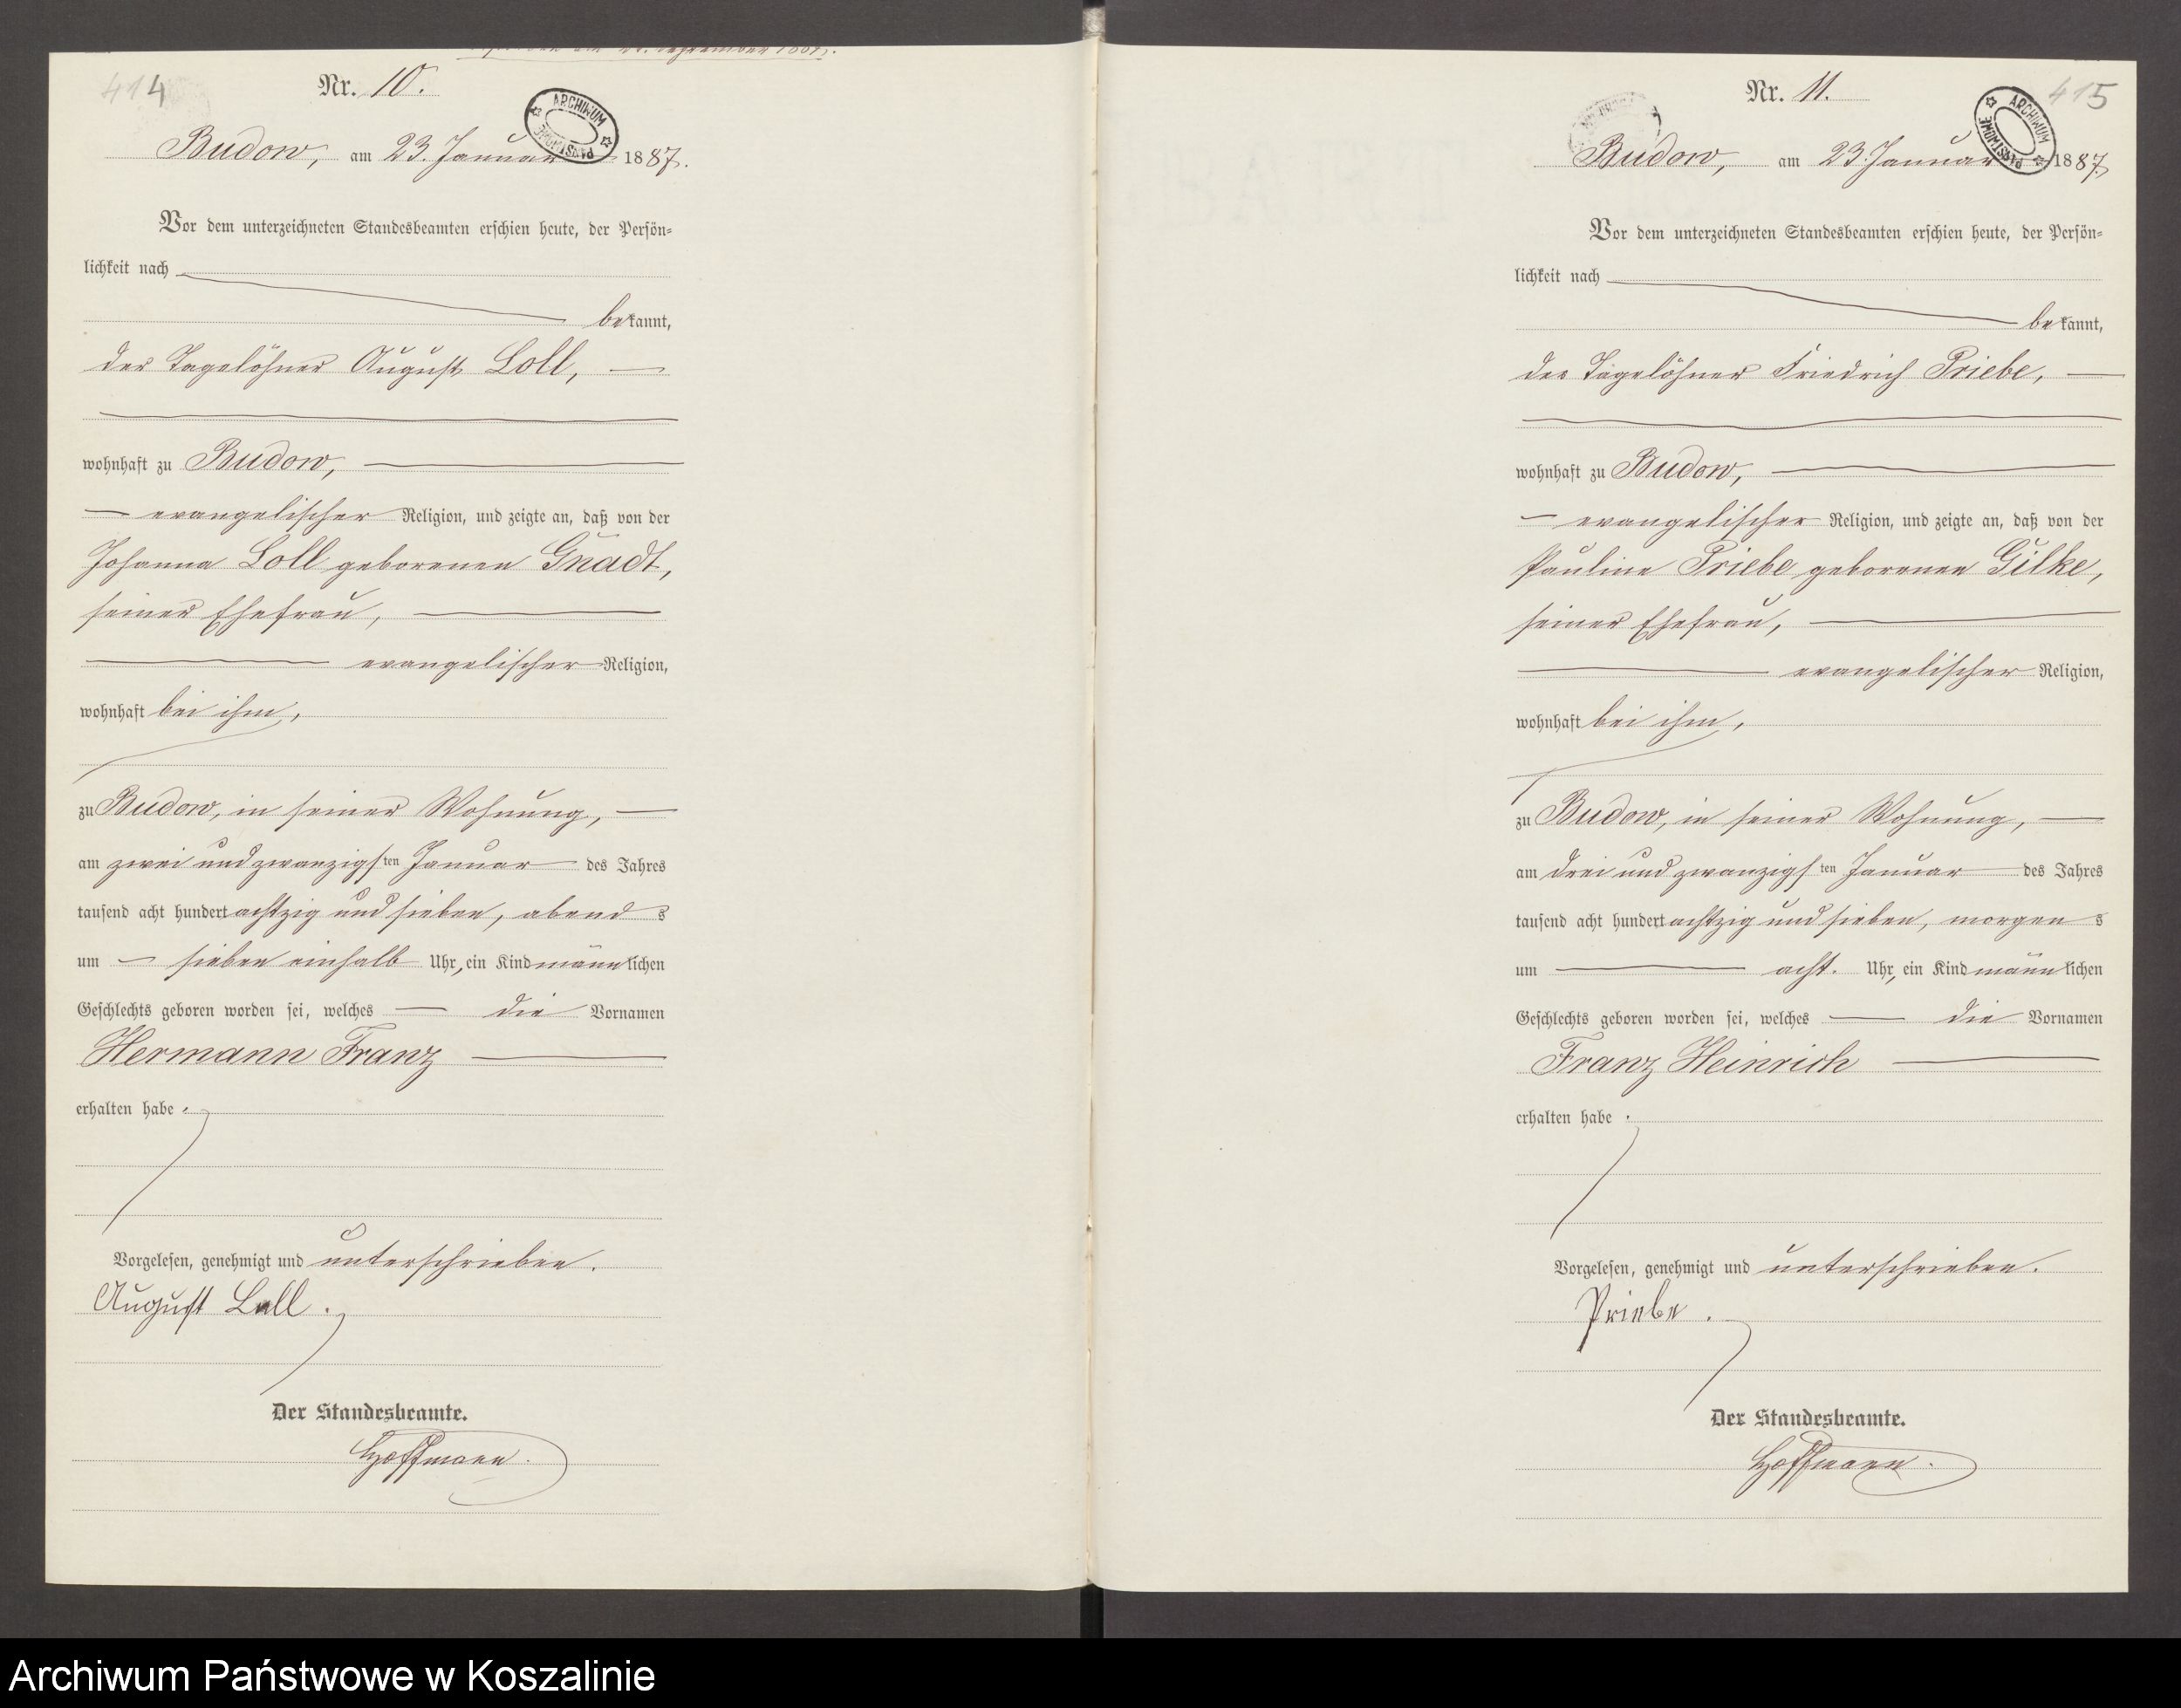 414
Nr. 10.
ARCHIWUM PAŃSTWOWE
Budow, am 23. Januar 1887.
Vor dem unterzeichneten Standesbeamten erschien heute, der Persön-
lichkeit nach
bekannt,
der Tagelöhner August Loll,
wohnhaft zu Budow,
evangelischer Religion, und zeigte an, daß von der
Johanna Loll geborenen Gnadt,
seiner Ehefrau,
evangelischer Religion,
wohnhaft bei ihm,
zu Budow, in seiner Wohnung,
am zwei und zwanzigsten Januar des Jahres
tausend acht hundert achtzig und sieben, abends
um sieben einhalb Uhr, ein Kind männlichen
Geschlechts geboren worden sei, welches die Vornamen
Hermann Franz
erhalten habe.
Vorgelesen, genehmigt und unterschrieben.
August Loll.
Der Standesbeamte.
Hoffmann.
415
Nr. 11.
ARCHIWUM PAŃSTWOWE
Budow, am 23. Januar 1887.
Vor dem unterzeichneten Standesbeamten erschien heute, der Persön-
lichkeit nach
bekannt,
der Tagelöhner Friedrich Priebe,
wohnhaft zu Budow,
evangelischer Religion, und zeigte an, daß von der
Pauline Priebe geborenen Gilke,
seiner Ehefrau,
evangelischer Religion,
wohnhaft bei ihm,
zu Budow, in seiner Wohnung,
am drei und zwanzigsten Januar des Jahres
tausend acht hundert achtzig und sieben, morgens
um acht. Uhr, ein Kind männlichen
Geschlechts geboren worden sei, welches die Vornamen
Franz Heinrich
erhalten habe.
Vorgelesen, genehmigt und unterschrieben.
Priebe.
Der Standesbeamte.
Hoffmann.
Archiwum Państwowe w Koszalinie